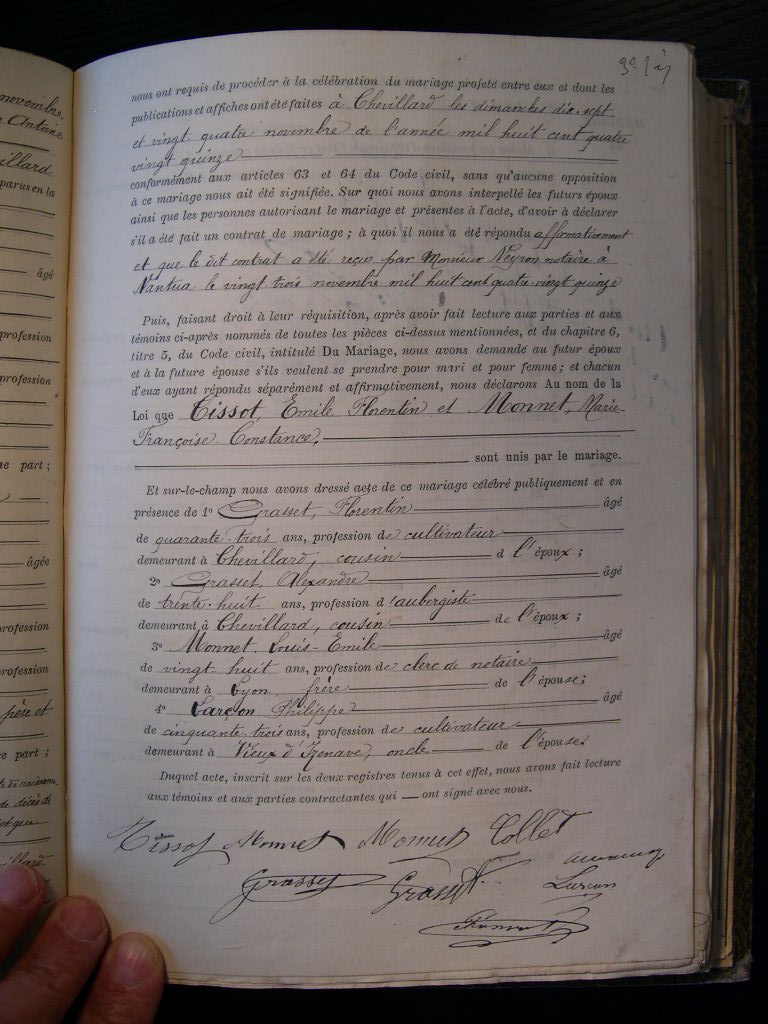 nous ont requis de procéder à la célébration du mariage projeté entre eux et dont les
publications et affiches ont été faites à Chevillard les dimanches dix-sept
et vingt quatre novembre de l'année mil huit cent quatre
vingt quinze
conformément aux articles 63 et 64 du Code civil, sans qu'aucune opposition
à ce mariage nous ait été signifiée. Sur quoi nous avons interpellé les futurs époux
ainsi que les personnes autorisant le mariage et présentes à l'acte, d'avoir à déclarer
s'il a été fait un contrat de mariage ; à quoi il nous a été répondu affirmativement
et que le dit contrat a été reçu par Monsieur Neyron notaire à
Nantua le vingt trois novembre mil huit cent quatre vingt quinze
Puis, faisant droit à leur réquisition, après avoir fait lecture aux parties et aux
témoins ci-après nommés de toutes les pièces ci-dessus mentionnées, et du chapitre 6,
titre 5, du Code civil, intitulé Du Mariage, nous avons demandé au futur époux
et à la future épouse s'ils veulent se prendre pour mari et pour femme ; et chacun
d'eux ayant répondu séparément et affirmativement, nous déclarons Au nom de la
Loi que Tissot, Emile Florentin et Monnet, Marie
Françoise Constance,
sont unis par le mariage.
Et sur-le-champ nous avons dressé acte de ce mariage célébré publiquement et en
présence de 1º Grasset, Florentin âgé
de quarante-trois ans, profession de cultivateur
demeurant à Chevillard, cousin d l'époux ;
2º Grasset, Alexandre âgé
de trente-huit ans, profession d'aubergiste
demeurant à Chevillard, cousin de l'époux ;
3º Monnet, Louis-Emile âgé
de vingt-huit ans, profession de clerc de notaire
demeurant à Lyon, frère de l'épouse ;
4º Larçon Philippe âgé
de cinquante-trois ans, profession de cultivateur
demeurant à Vieux d'Izenave, oncle de l'épouse.
Duquel acte, inscrit sur les deux registres tenus à cet effet, nous avons fait lecture
aux témoins et aux parties contractantes qui ont signé avec nous.
Tissot Monnet Monnet Collet
Grasset Grasset
novembre
Antoine
illard
parus en la
âgé
profession
profession
e part ;
âgée
rofession
rofession
père et
e part ;
illard